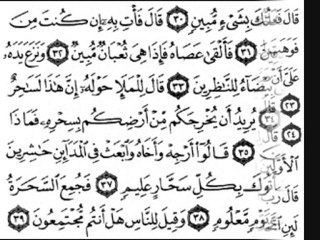 قَالَ بِشَىْءٍ مُّبِينٍ ٣٠ قَالَ فَأْتِ بِهِۦٓ إِن كُنتَ مِنَ
٣١ فَأَلْقَىٰ عَصَاهُ فَإِذَا هِىَ ثُعْبَانٌ مُّبِينٌ ٣٢ وَنَزَعَ يَدَهُۥ
بَيْضَآءُ لِلنَّٰظِرِينَ ٣٣ قَالَ لِلْمَلَإِ حَوْلَهُۥٓ إِنَّ هَٰذَا لَسَٰحِرٌ
يُرِيدُ أَن يُخْرِجَكُم مِّنْ أَرْضِكُم بِسِحْرِهِۦ فَمَاذَا
٣٥ قَالُوٓا۟ أَرْجِهْ وَأَخَاهُ وَٱبْعَثْ فِى ٱلْمَدَآئِنِ حَٰشِرِينَ
بِكُلِّ سَحَّارٍ عَلِيمٍ ٣٧ فَجُمِعَ ٱلسَّحَرَةُ
يَوْمٍ مَّعْلُومٍ ٣٨ وَقِيلَ لِلنَّاسِ هَلْ أَنتُم مُّجْتَمِعُونَ ٣٩